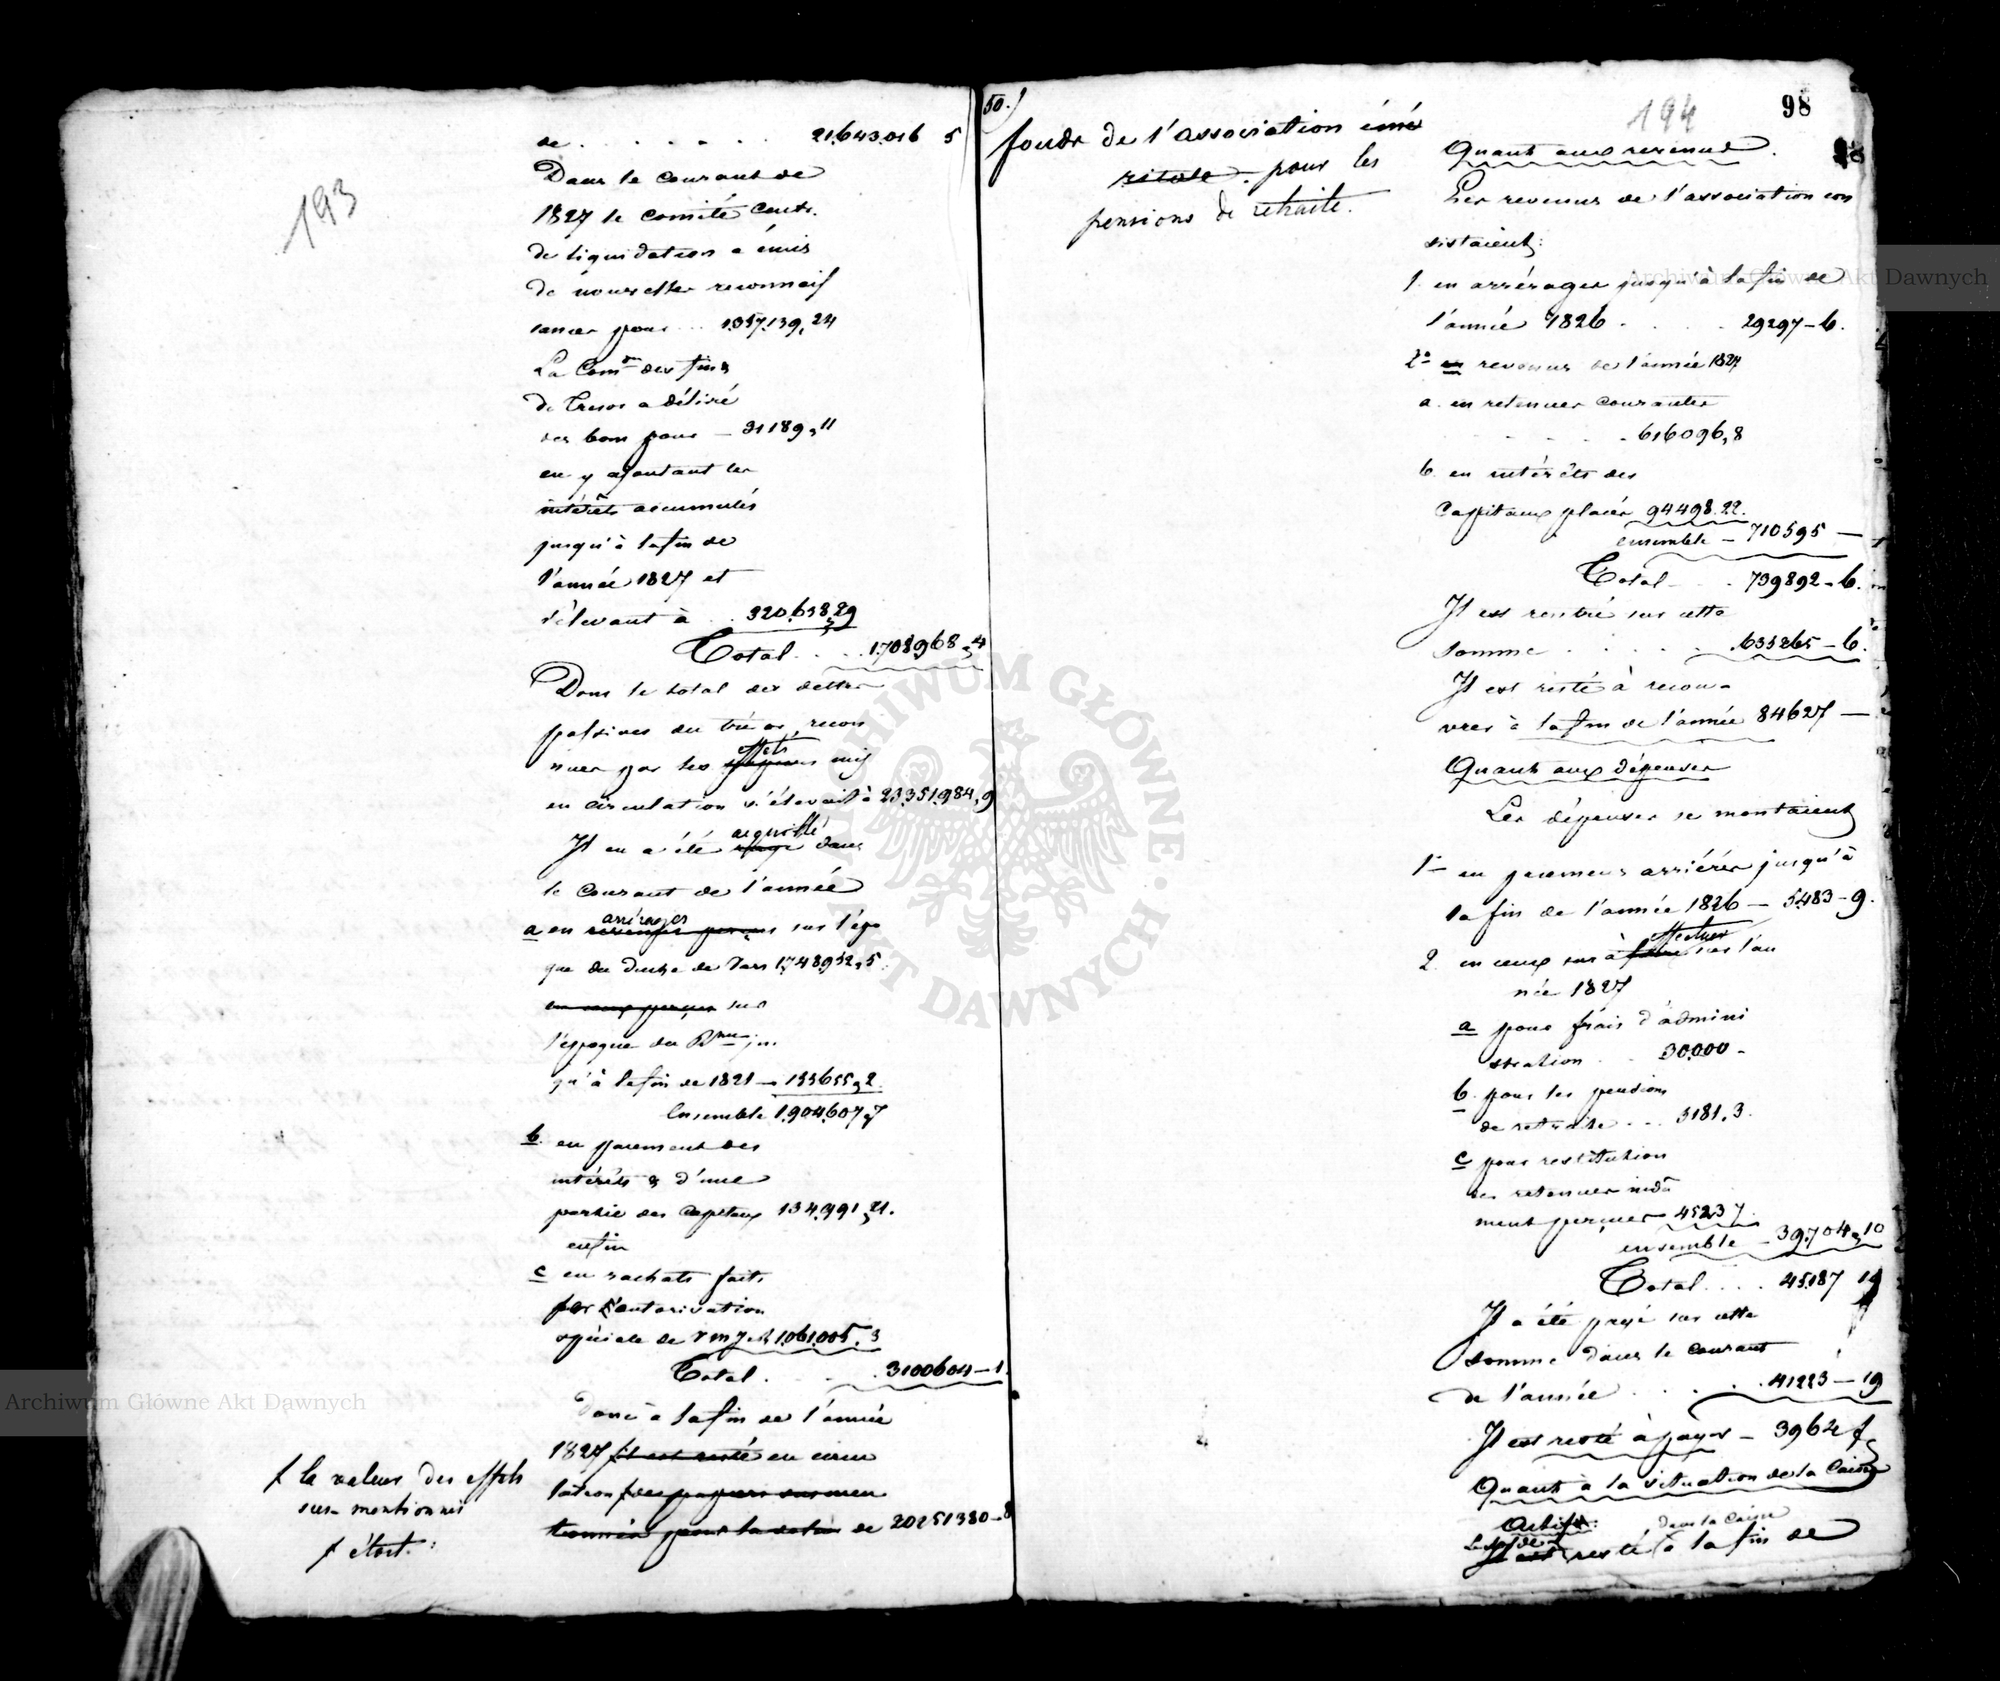 193
de . . . . . . 21.643.016 5
Dans le courant de
1827 le comité centr.
de liquidation a émis
de nouvelles reconnais
sances pour ... 1.357.139,24
La Comon des fin
du Tresor a délivré
des bons pour — 31189,11
en y ajoutant les
intérêts accumulés
jusqu'à la fin de
l'année 1827 et
s'élevant à .. 320.638,29
Total . . . 1.708.968,4
Donc le total des dettes
passives du trésor, recon
nues par les effets mis
en circulation s'élevait à 23.351.984,9
Il en a été acquitté dans
le courant de l'année
a en arrérages sur l'épo
que du Duché de Vars 1.748.952,5.
en ceux perçus sur
l'époque du Rme jus
qu'à la fin de 1821 — 155655,2
Ensemble 1.904.607,7
b. en paiement des
intérêts & d'une
partie des capitaux 134.991,21.
enfin
c en rachats faits
par l'autorisation
spéciale de 1.061.005,3
Total . . . 3100604—1.
Donc à la fin de l'année
1827 il est resté en circu
lation des papiers susmen
tionnés pour la valeur de 20251380—8
f la valeur des effets
sus-mentionnés
f était:
Archiwum Główne Akt Dawnych
50.)
fonds de l'association émé
ritale. pour les
pensions de retraite.
194
98
Quant aux revenus.
Les revenus de l'association con
sistaient:
1. en arrérages jusqu'à la fin de
l'année 1826 . . . . 29297—6.
2° en revenus de l'année 1827
a. en retenues courantes
. . . . 616096,8
b. en intérêts des
capitaux placés 94498.22.
ensemble — 710595 —
Total . . . 739892—6.
Il est rentré sur cette
somme . . . . . 655265—6.
Il est resté à recou-
vrer à la fin de l'année 84627 —
Quant aux dépenses
Les dépenses se montaient
1° en paiemens arriérés jusqu'à
la fin de l'année 1826 — 5483—9.
2. en ceux à effectuer sur l'an
née 1827
a pour frais d'admini
stration . . 30.000 -
b. pour les pensions
de retraite ... 5181.3.
c pour restitution
des retenues indû
ment perçues 4523 7.
ensemble — 39.704,10
Total . . . . 45187 19
Il a été payé sur cette
somme dans le courant
de l'année . . . . . 41223—19
Il est resté à payer — 3964 f
Quant à la situation de la Caisse
Actif: dans la Caisse
Il est resté à la fin de
Archiwum Główne Akt Dawnych
ARCHIWUM GŁÓWNE · AKT DAWNYCH ·